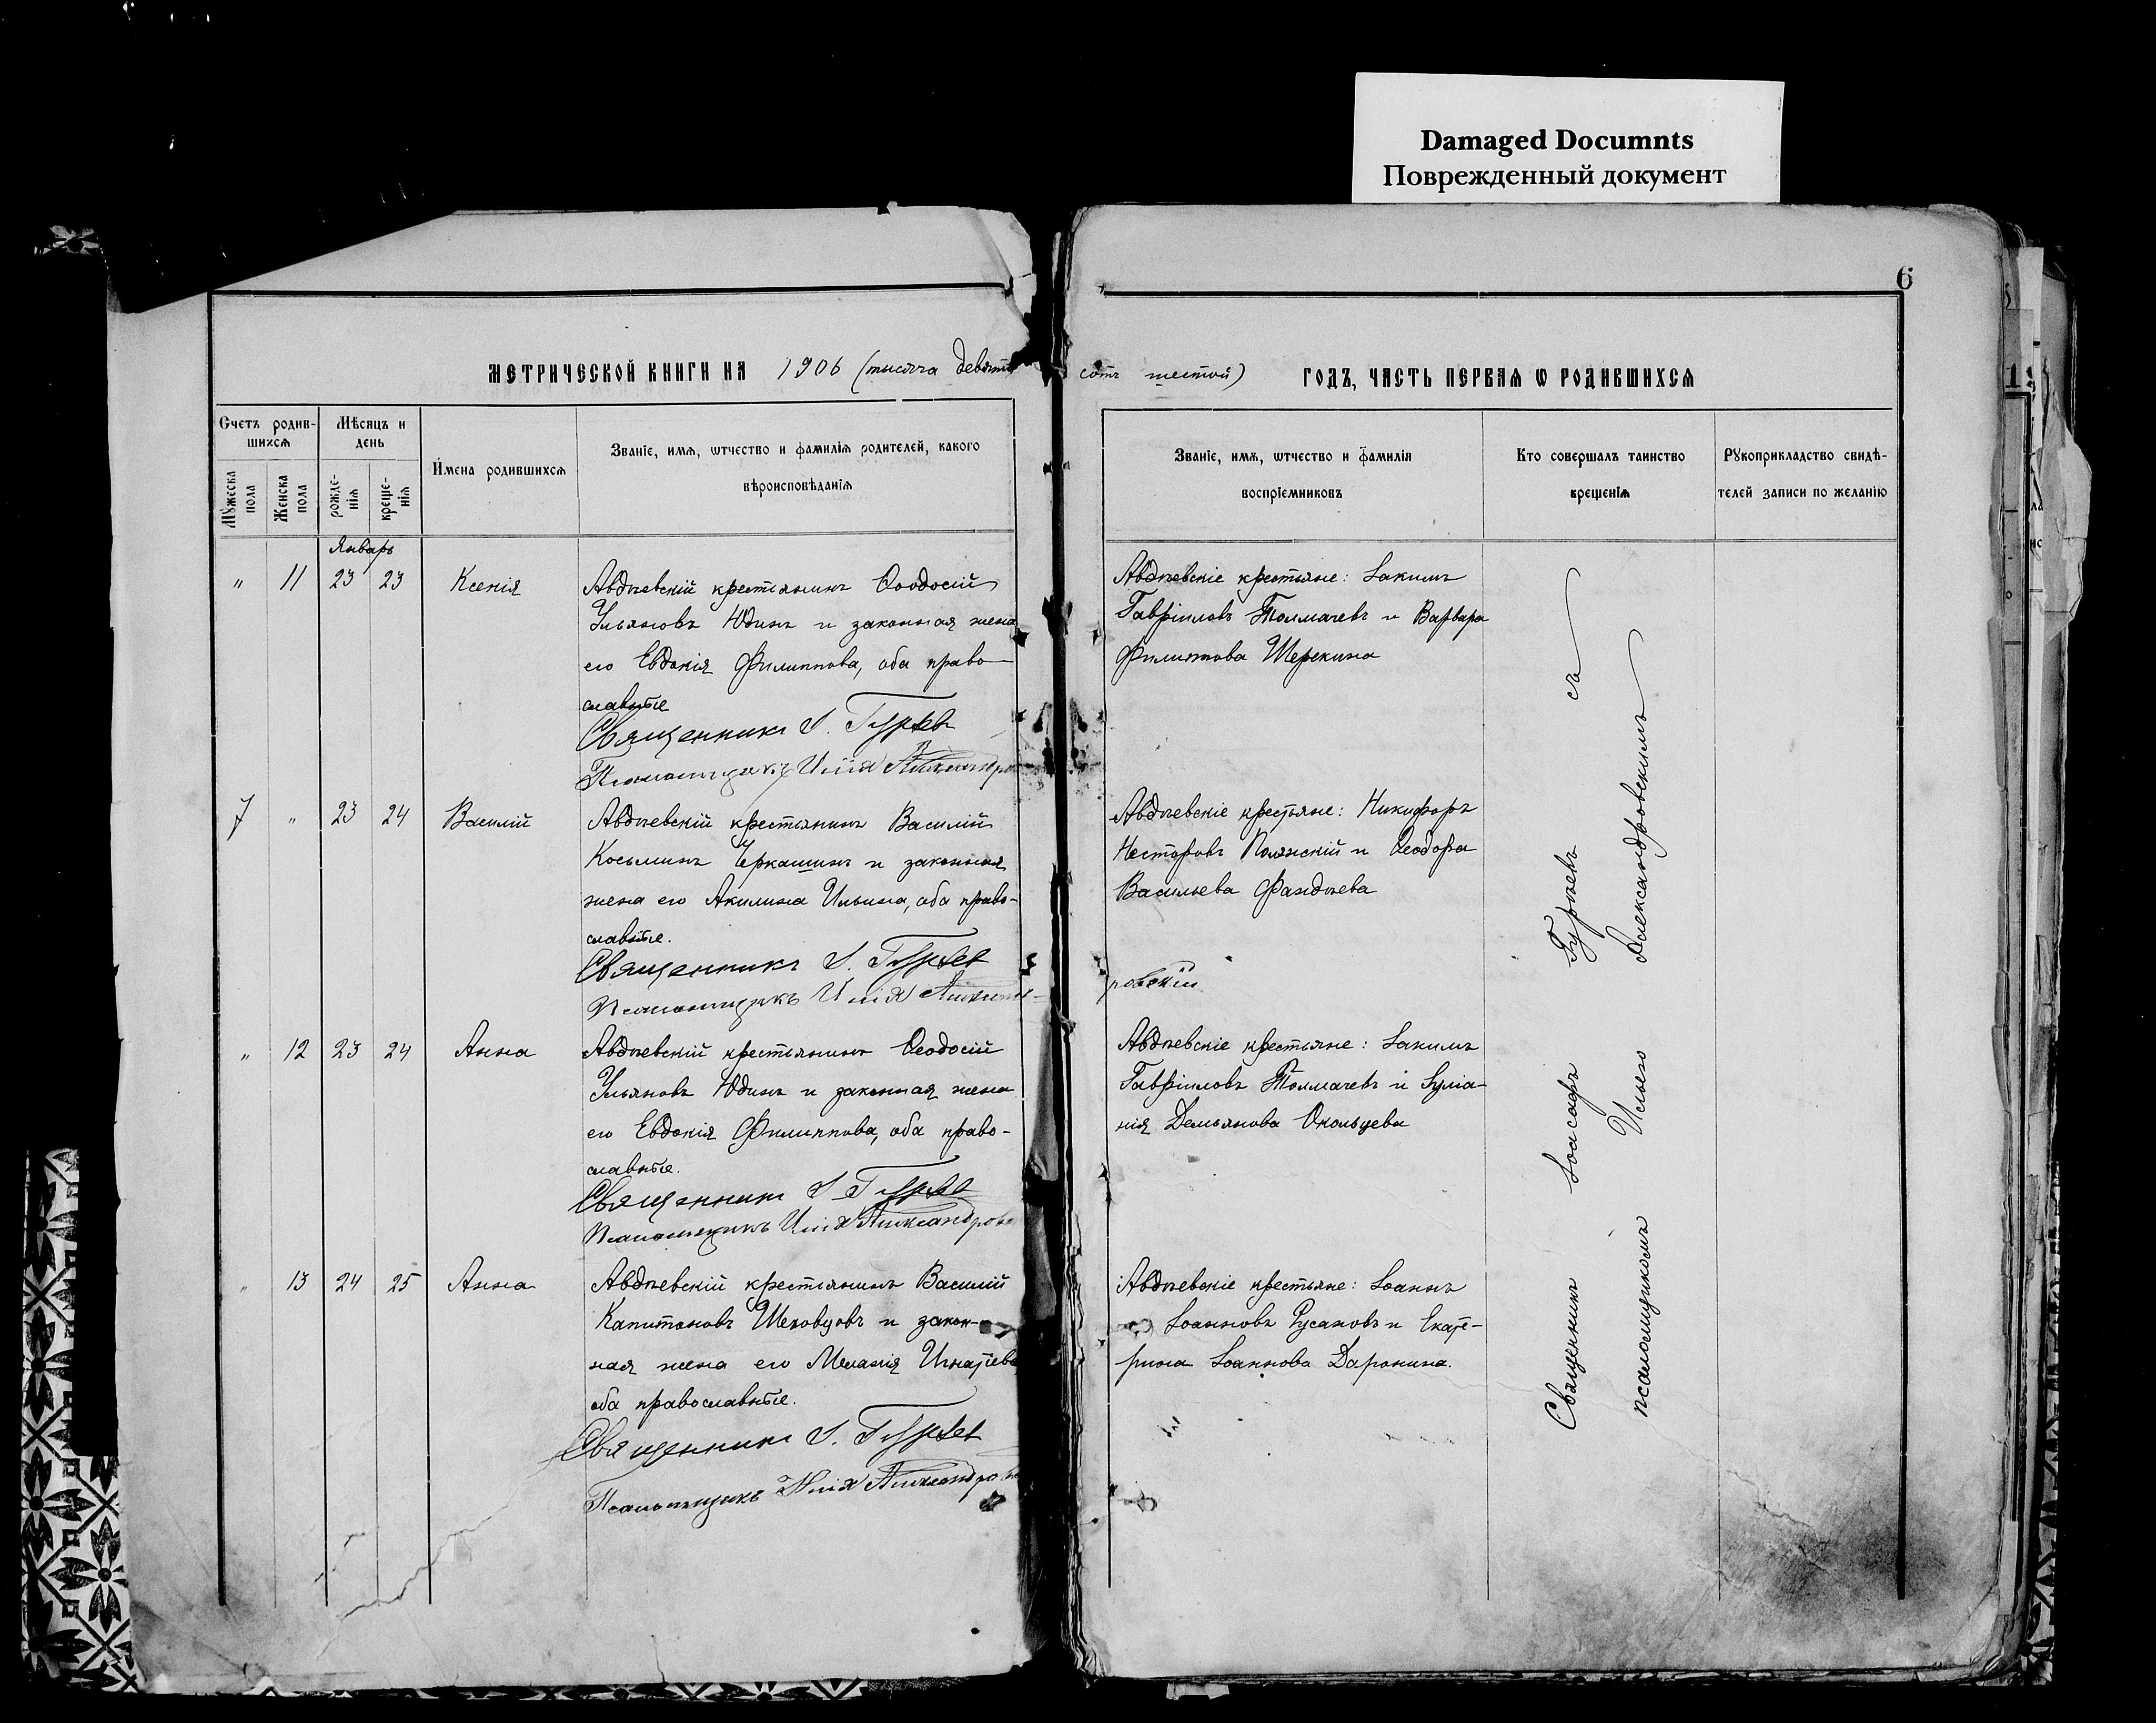 Damaged Documnts
Поврежденный документ
6
МЕТРИЧЕСКОЙ КНИГИ НА 1906 (тысяча девять
сотъ шестой) ГОДЪ, ЧАСТЬ ПЕРВАЯ Ѡ РОДИВШИХСЯ
Счетъ родив-
шихся
Мужеска пола
Женска пола
Мѣсяцъ и
день
рожде-
нія
креще-
нія
Имена родившихся
Званіе, имя, ѿчество и фамилія родителей, какого
вѣроисповѣданія
Званіе, имя, ѿчество и фамилія
воспріемниковъ
Кто совершалъ таинство
крещенія
Рукоприкладство свидѣ-
телей записи по желанію
Январь
" 11 23 23 Ксенія
Авдѣевскій крестьянинъ Ѳеодосій
Ульяновъ Юдинъ и законная жена
его Евдокія Филиппова, оба право-
славные
Священникъ І. Гурьев
Псаломщикъ Илія Александро
Авдѣевскіе крестьяне: Іакимъ
Гавріиловъ Толмачевъ и Варвара
Филиппова Шерекина
7 " 23 24 Василій
Авдѣевскій крестьянинъ Василій
Косьминъ Черкашинъ и законная
жена его Акилина Ильина, оба право-
славные.
Священникъ І. Гурьев
Псаломщикъ Илія Александ-
Авдѣевскіе крестьяне: Никифоръ
Несторовъ Полянскій и Ѳеодора
Васильева Фандѣева
ровскій
" 12 23 24 Анна
Авдѣевскій крестьянинъ Ѳеодосій
Ульяновъ Юдинъ и законная жена
его Евдокія Филиппова, оба право-
славные.
Священникъ І. Гурьев
Псаломщикъ Илія Александров
Авдѣевскіе крестьяне: Іакимъ
Гавріиловъ Толмачевъ и Іуліа-
нія Демьянова Окольцева
" 13 24 25 Анна
Авдѣевскій крестьянинъ Василій
Капитоновъ Шеховцовъ и закон-
ная жена его Меланія Игнатіева
оба православные.
Священникъ І. Гурьев
Псаломщикъ Илія Александров
Авдѣевскіе крестьяне: Іоаннъ
Іоанновъ Русановъ и Екате-
рина Іоаннова Даронина.
Священникъ Іоасафъ Гурьевъ съ
псаломщикомъ Ильею Александровскимъ